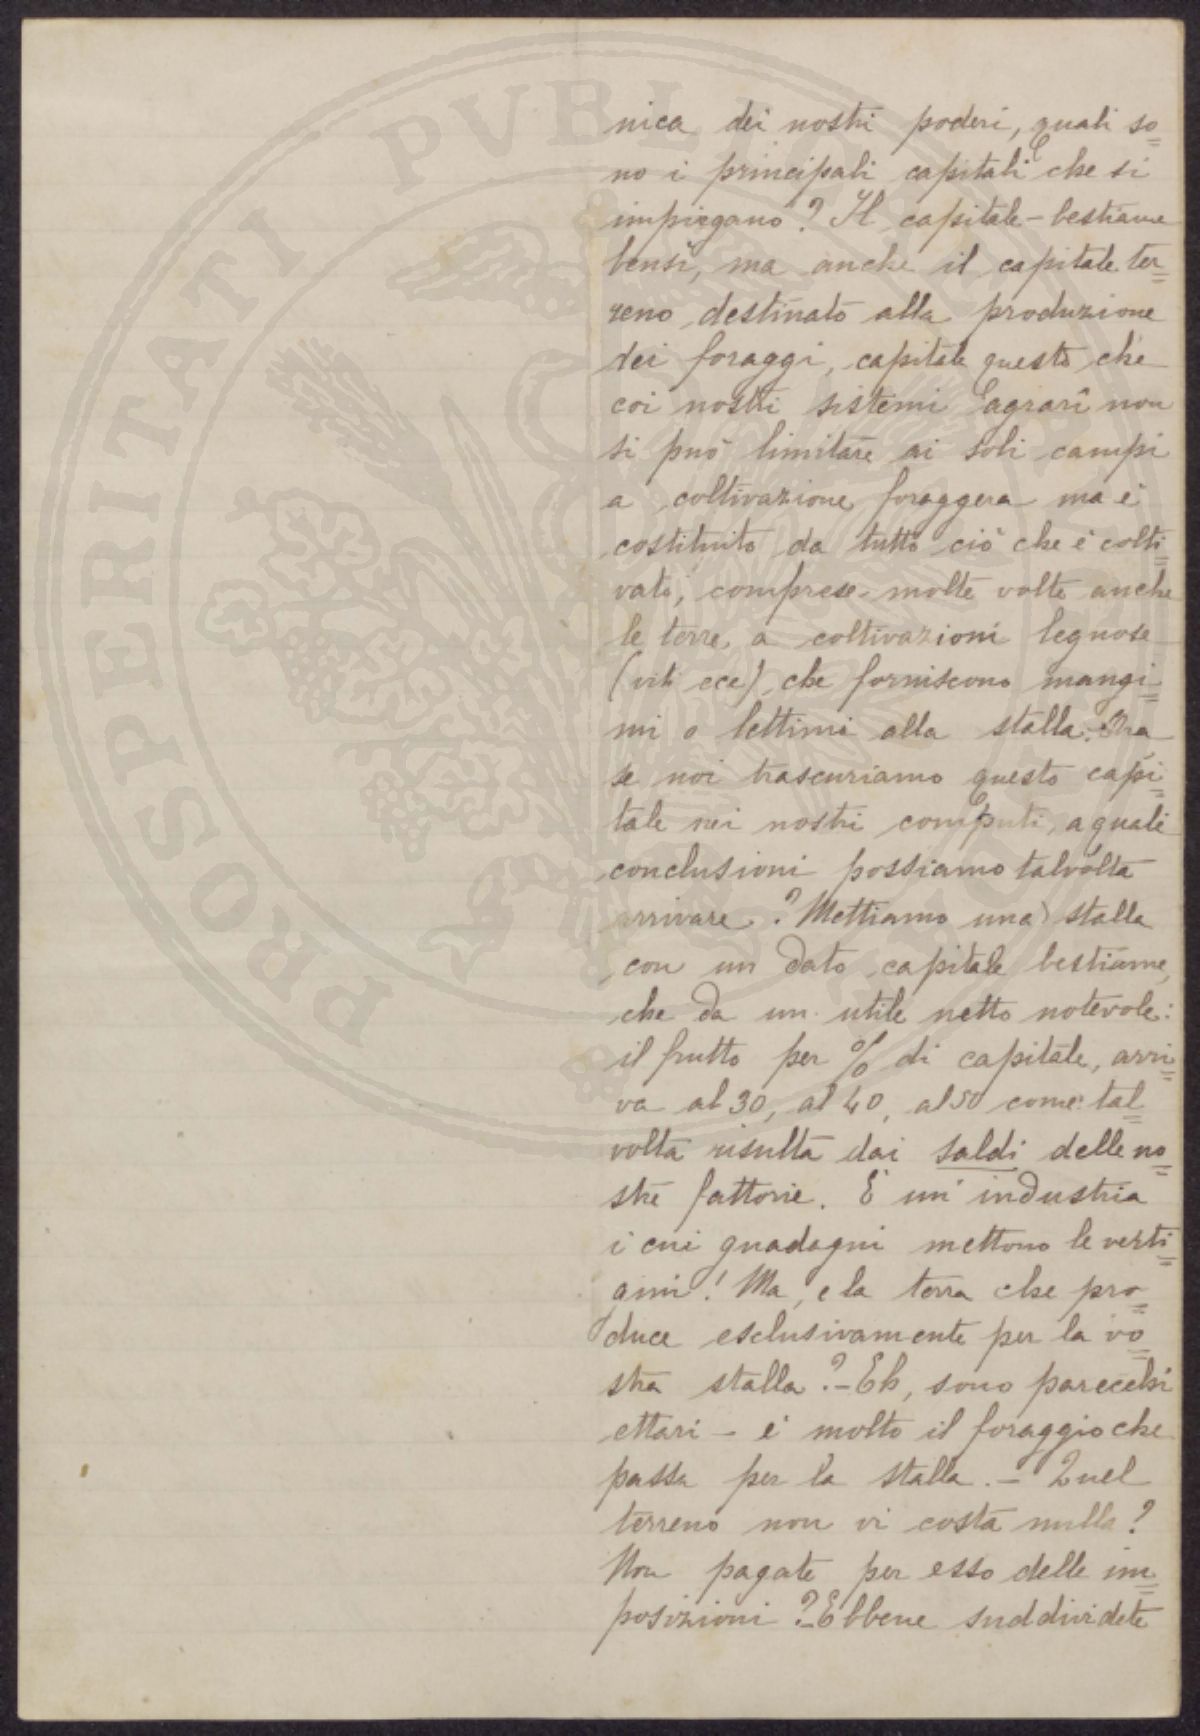 nica dei nostri poderi, quali so=
no i principali capitali che si
impiegano? Il capitale-bestiame
bensì, ma anche il capitale ter=
reno destinato alla produzione
dei foraggi, capitale questo che
coi nostri sistemi agrarî non
si può limitare ai soli campi
a coltivazione foraggera ma è
costituito da tutto ciò che è colti=
vato, comprese molte volte anche
le terre a coltivazioni legnose
(viti ecc), che forniscono mangi=
mi o lettimi alla stalla. Ora
se noi trascuriamo questo capi=
tale nei nostri computi, a quali
conclusioni possiamo talvolta
arrivare? Mettiamo una stalla
con un dato capitale bestiame,
che da un utile netto notevole:
il frutto per % di capitale, arri=
va al 30, al 40, al 50 come tal=
volta risulta dai saldi delle no=
stre fattorie. È un'industria
i cui guadagni mettono le verti=
gini! Ma, e la terra che pro=
duce esclusivamente per la vo=
stra stalla? - Eh, sono parecchi
ettari - è molto il foraggio che
passa per la stalla. - Quel
terreno non vi costa nulla?
Non pagate per esso delle im=
posizioni? - Ebbene suddividete
PROSPERITATI PVBLICAE